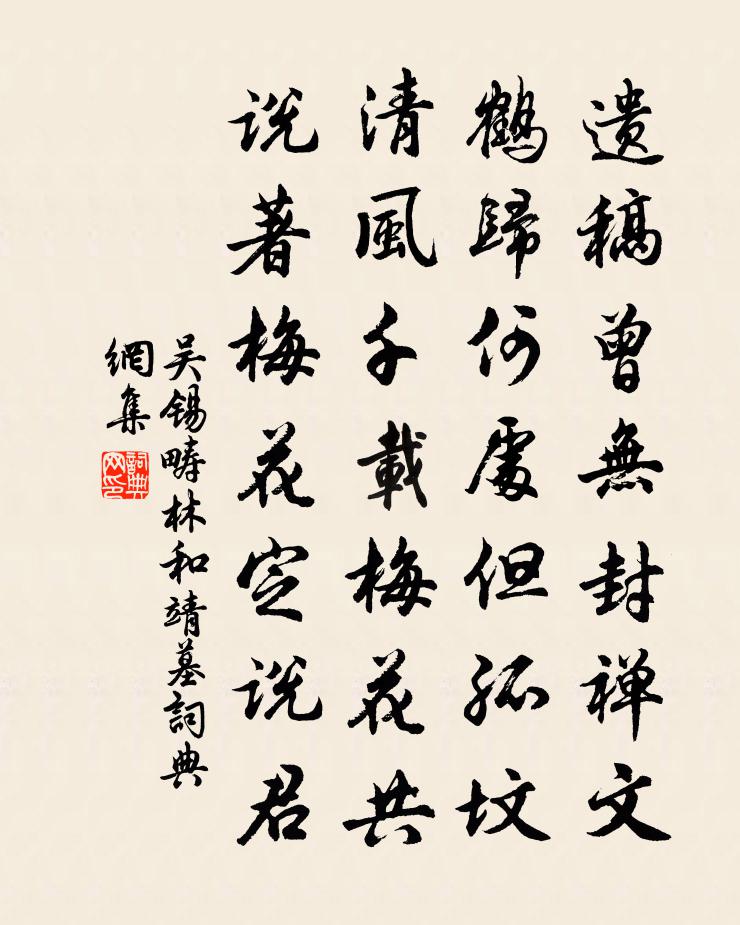 遺稿曾無封禅文
鶴歸何處但孤坟
清風千載梅花共
说著梅花定说君
吴锡畴林和靖墓詞典
網集
詞典网印